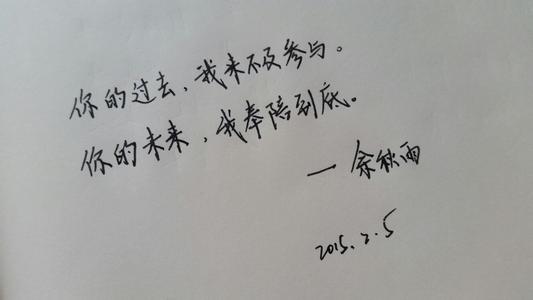 你的过去，我来不及参与。
你的未来，我奉陪到底。
一 余秋雨
2015.2.5